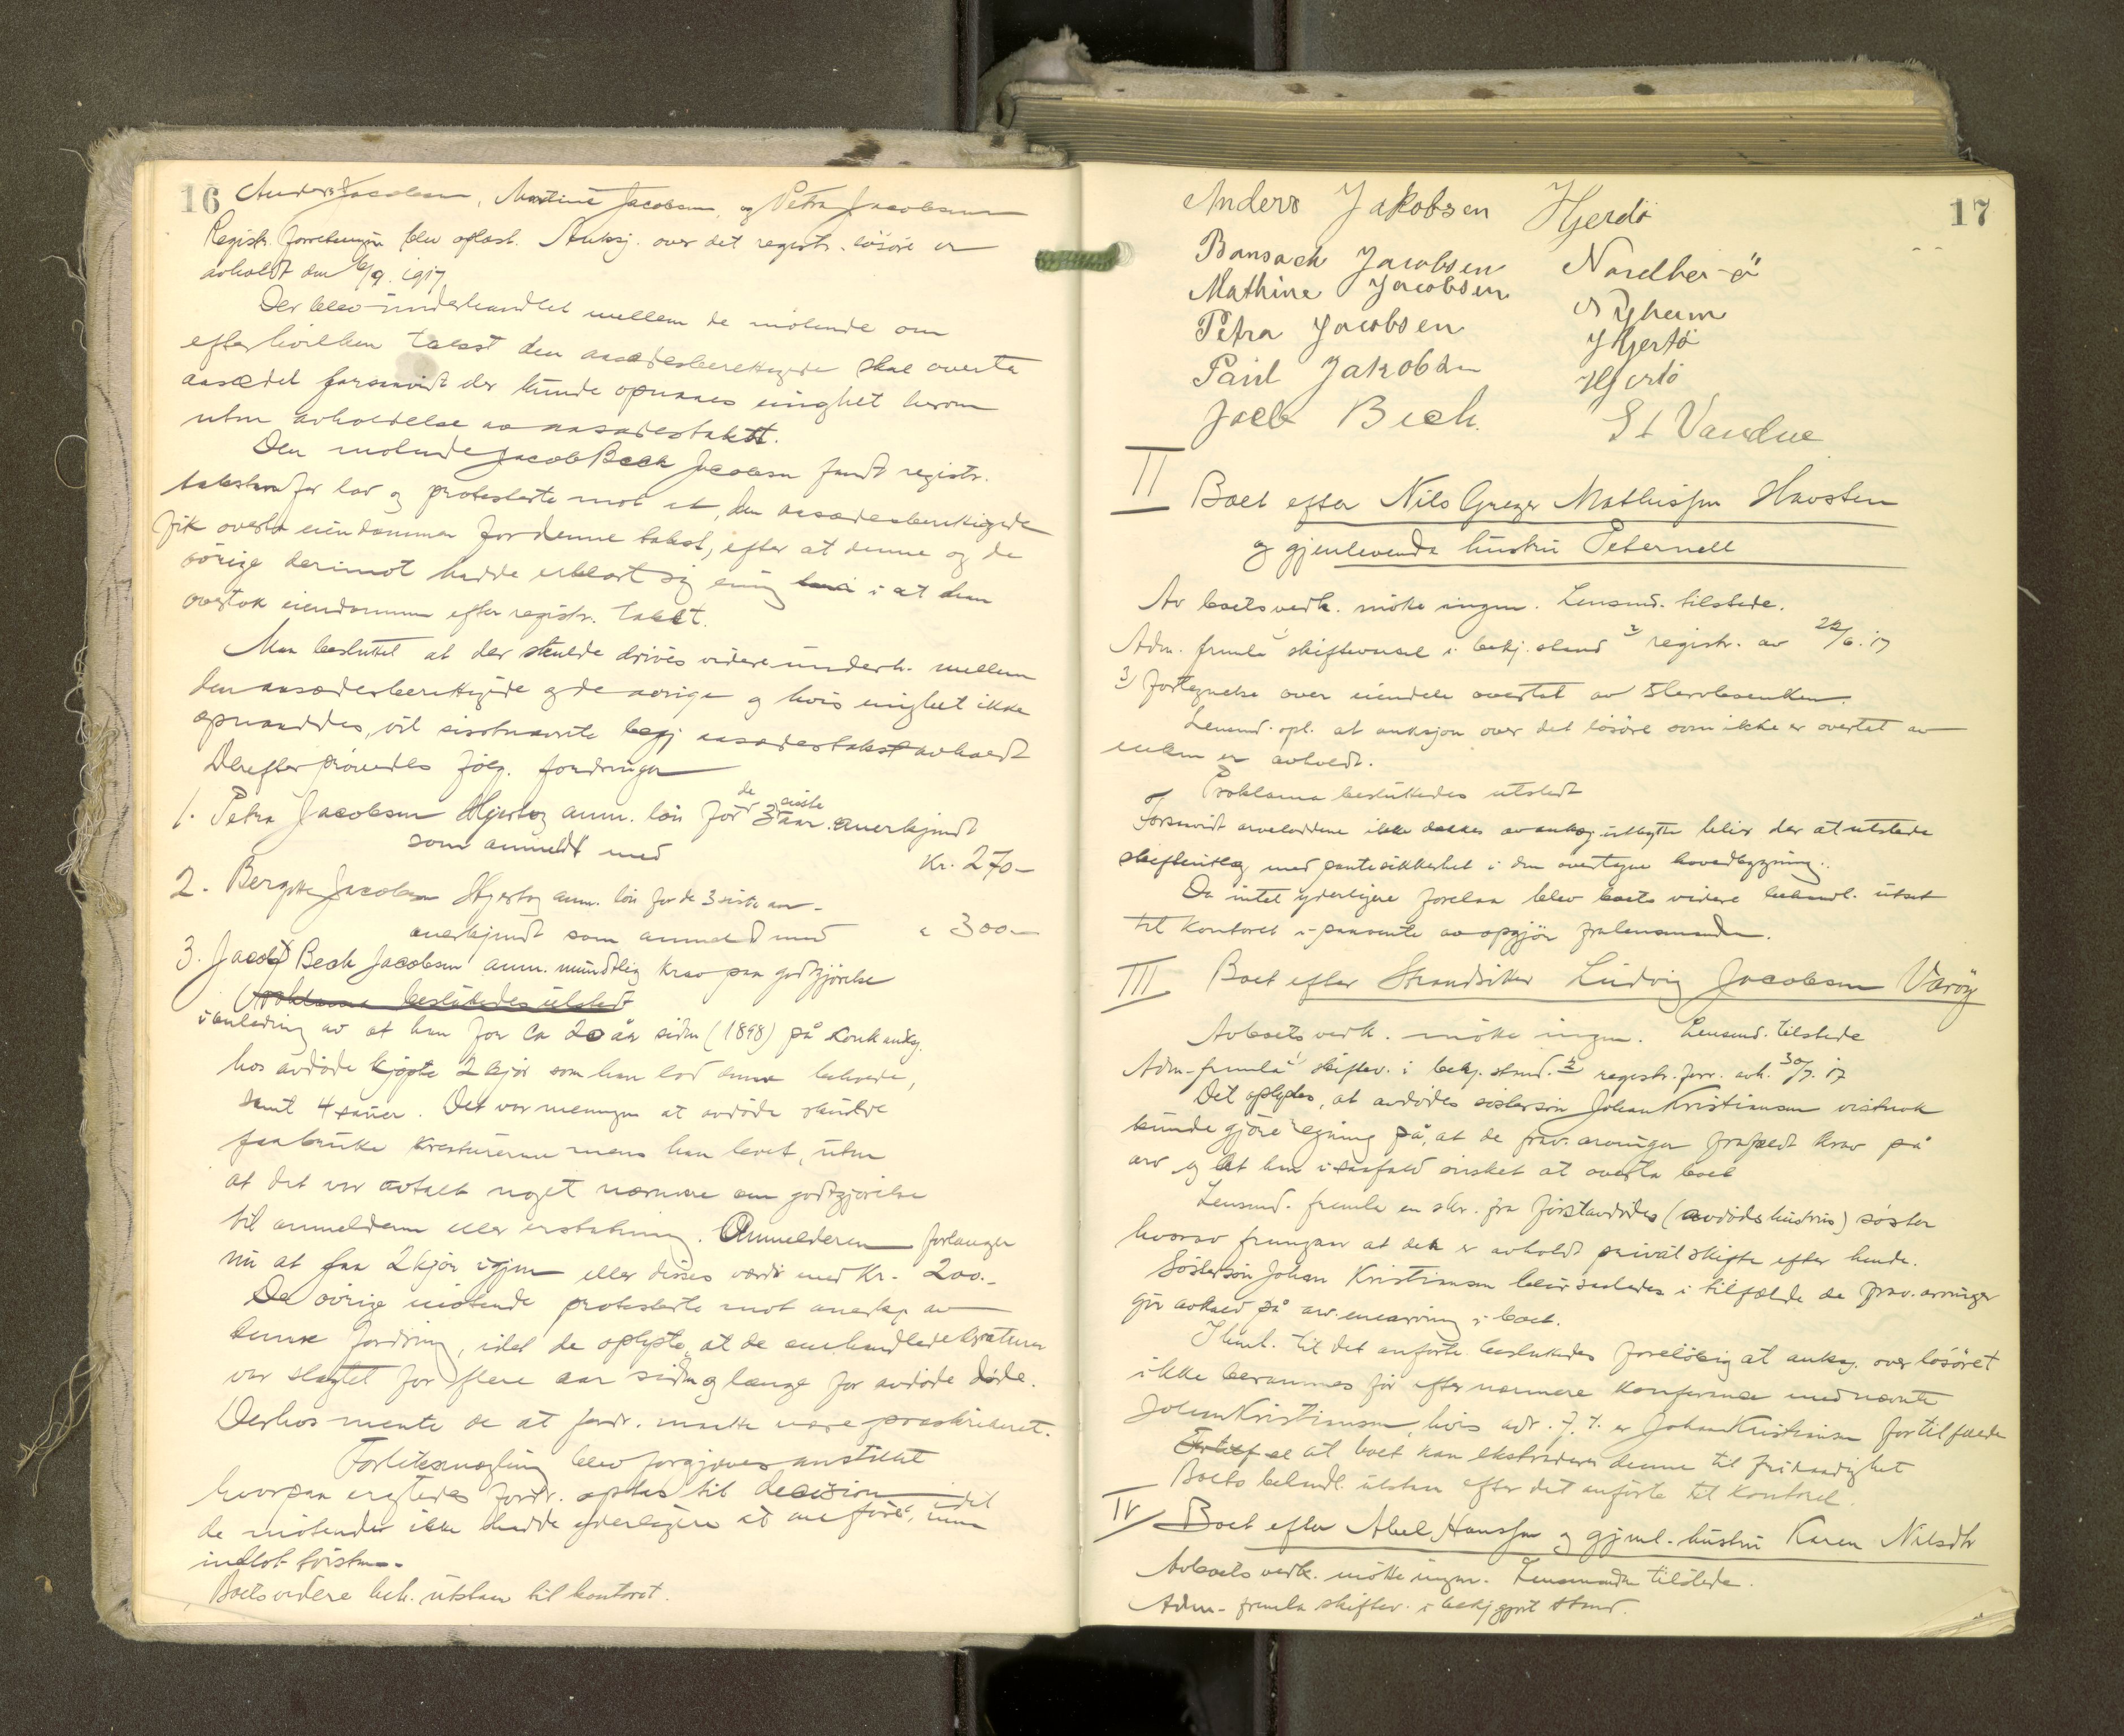 16 Anders Jacobsen, Martine Jacobsen, og Petra Jacobsen
Registr. forretningen blev oplæst. Auksj. over det registr. løsøre er
avholdt den 6/9. 1917
Der blev underhandlet mellem de mötende om
efter hvilken takst den aasædesberettigede skal overta
aasædet forsaavidt der kunde opnaaes enighet herom
uten avholdelse av aasædestakst.
Den mötende Jacob Bech Jacobsen fandt registr.
taksten for lav og protesterte mot at den aasædesberettigede
fik overta eiendommen for denne takst, efter at denne og de
övrige derimot hadde erklært sig enig i at han
overtok eiendommen efter registr. takst.
Man besluttet at der skulde drives videre underh. mellem
den aasædesberettigede og de övrige og hvis enighet ikke
opnaaddes, vil sistnævnte begj. aasædestakst avholdt
Derefter prövedes fölg. fordringer
1. Petra Jacobsen Hjertöy anm. lön for de siste 3 aar. anerkjendt
som anmeldt med Kr. 270 –
2. Bergitte Jacobsen Hjertöy anm. lön for de 3 siste aar –
anerkjendt som anmeldt med " 300 –
3. Jacob Bech Jacobsen anm. mündtlig krav paa godtgjörelse
Proklama besluttedes utstedt
i anledning av at han for ca 20 år siden (1898) på konk auksj.
hos avdöde kjöpte 2 kjör som han lod denne beholde,
samt 4 sauer. Det var meningen at avdöde skulde
faa bruke kreaturene mens han levet, uten
at det var avtalt noget nærmere om godtgjörelse
til anmelderen eller erstatning. Anmelderen forlanger
nu at faa 2 kjör igjen eller disses værdi med Kr. 200.–
De övrige mötende protesterte mot anerkj. av
denne fordring, idet de oplyste, at de omhandlede kreaturer
var slagtet for flere aar siden og længe for avdöde döde.
Derhos mente de at fordr. maatte være præskriberet.
Forliksmægling blev forgjæves anstillet
hvorpaa ... fordr. optas til decision idet
de mötende ikke hadde yderligere at anföre, men
indlot tvisten.
Boets videre beh. utstaar til kontoret.
Anders Jakobsen Hjerdö
Bansach Jacobsen Nordher-ö
Mathine Jacobsen Nyheim
Petra Jacobsen Hjertö
Paul Jakobsen Hjertö
Jacob Bech. St Vandve
17
II Boet efter Nils Greger Mathissen Havsten
og gjenlevende hustru Peternell
Av boets vedk. mötte ingen. Lensmd. tilstede.
Adm. fremla 1 skiftevarsel i bekj. stand 2 registr. av 22/6. 17
3) Fortegnelse over eiendele overtat av enken.
Lensmd. opl. at auksjon over det lösöre som ikke er overtat av
enken er avholdt.
Proklama besluttedes utstedt
Forsaavidt arvelodderne ikke dækkes av auksj. utbytte blir der at utstede
skifteutlæg med pantesikkerhet i den overtagne hovedbygning.
Da intet yderligere forelaa blev boets videre behandl. utsat
til kontoret i paavente av opgjör fra lensmanden.
III Boet efter Strandsitter Ludvig Jacobsen Varöy
Av boets vedk. mötte ingen. Lensmd. tilstede
Adm. fremla 1 skiftev. i bekj. stand. 2 registr. forr. avh. 30/7. 17
Det oplystes, at avdödes söstersön Johan Kristiansen vistnok
kunde gjöre regning på, at de frav. arvinger frafaldt krav på
arv og at han i saafald önsket at overta boet
Lensmd. fremla en skr. fra förstavdödes (avdödes hustrus) söster
hvorav fremgaar at der er avholdt privat skifte efter hende.
Söstersön Johan Kristiansen blir saaledes i tilfælde de frav. arvinger
gir avkald på arv. enearving i boet.
I henh. til det anförte besluttedes foreløbig at auksj. over lösöret
ikke berammes för efter nærmere konferanse med nævnte
Johan Kristiansen, hvis adr. f. t. er Johan Kristiansen for tilfælde
at boet kan ekstraderes denne til fri raadighet
Boets behandl. utstaar efter det anförte til kontoret.
IV Boet efter Abel Hanssen og gjenl. hustru Karen Nilsdtr
Av boets vedk. mötte ingen. Lensmanden tilstede.
Adm. fremla skiftev. i bekjgjort stand.